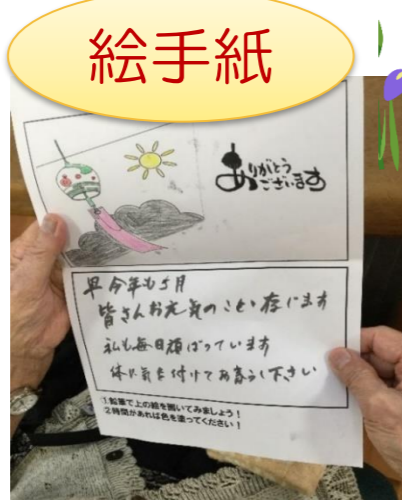 絵手紙
ありがとう
ございます
早今年も5月
皆さんお元気のことと存じます
私も毎日頑ばっています
体に気を付けてお暮し下さい
1鉛筆で上の絵を描いてみましょう！
2時間があれば色を塗ってください！